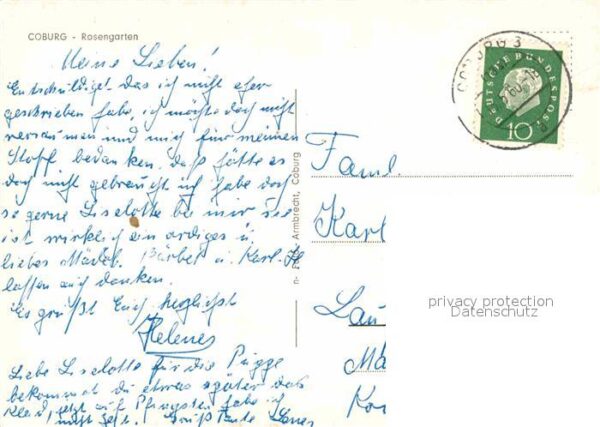 COBURG - Rosengarten
Meine Lieben!
Entschuldigt das ich nicht eher
geschrieben habe, ich möchte doch nicht
versäumen und mich für meinen
Stoff bedanken. daß hätte es
doch nicht gebraucht ich habe doch
so gerne Liselotte bei mir sie
ist wirklich ein ardiges u.
liebes Mädch. Bärbel u. Karl-H
lassen auch danken.
Es grüßt Euch herzlichst
Helene
Liebe Liselotte für die Puppe
bekommst du etwas später das
Kleid, jetzt auf Pfingsten habe ich
nicht Zeit. Grüß Tante
Armbrecht, Coburg
COBURG 3
DEUTSCHE BUNDESPOST
10
Faml.
Karl
Lau
Mä
privacy protection
Datenschutz